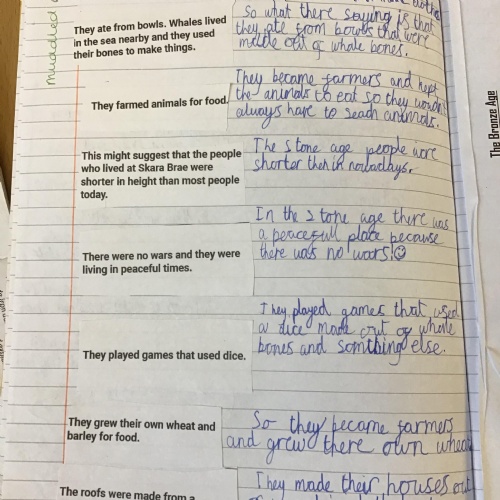 muddled
They ate from bowls. Whales lived
in the sea nearby and they used
their bones to make things.
so what there saying is that
they ate from bowls that were
made out of whale bones.
They farmed animals for food.
They became farmers and kept
the animals to eat so they
always have to seach animals.
This might suggest that the people
who lived at Skara Brae were
shorter in height than most people
today.
The stone age people were
shorter then in nowadays.
There were no wars and they were
living in peaceful times.
In the stone age there was
a peacefull place because
there was no wars!
They played games that used dice.
They played games that used
a dice made out of whale
bones and somthing else.
They grew their own wheat and
barley for food.
So they became farmers
and grew there own wheat
The roofs were made from a
They made their houses out
The Bronze Age